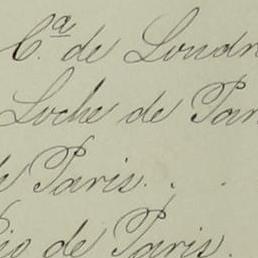 C.ª de Londr
Loche de Par
de Paris. .
Rio de Paris.